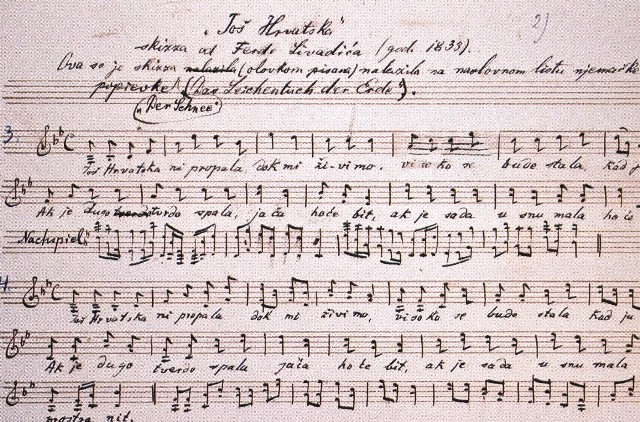 "Još Hrvatska" 2)
skizza od Ferde Livadića (god. 1833).
Ova se je skizza nalazila (olovkom pisana) nalazila na naslovnom listu njemačke
popievke (Das Leichentuch der Erde").
"Der Schnee"
3.
Još Hrvatska ni propala dok mi ži-vimo, visoko se bude stala, kad j
Ak je dugo tvrdo spala, jača hoće bit, ak je sada u snu mala hoće
Nachspiel:
4.
Još Hrvatska ni propala dok mi živimo, visoko se bude stala kad ju
Ak je dugo tverdo spala jača hoće bit, ak je sada u snu mala
nit.